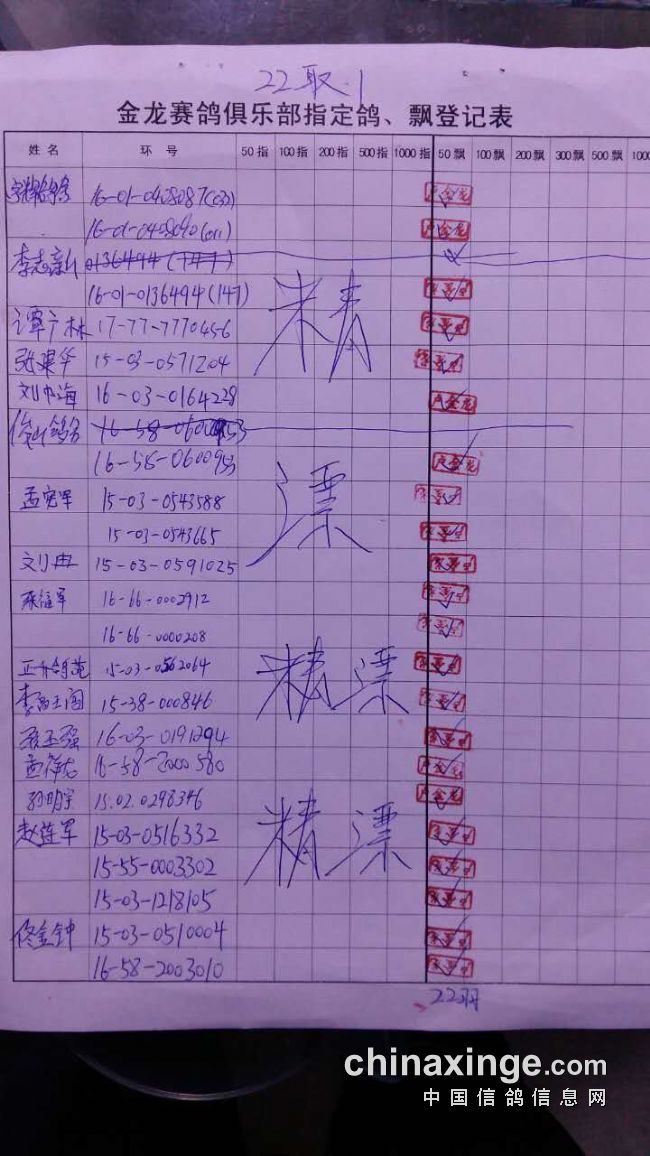 22取1
金龙赛鸽俱乐部指定鸽、飘登记表
姓名 环号 50指 100指 200指 500指 1000指 50飘 100飘 200飘 300飘 500飘 1000
16-01-0408087(033)
16-01-0408090(011)
李志新 0136494(147)
16-01-0136494(147)
谭广林 17-77-7770456
张建华 15-03-0571204
刘中海 16-03-0164228
16-58-0600953
16-58-0600953
孟宪军 15-03-0543588
15-03-0543665
刘冉 15-03-0591025
16-66-0002912
16-66-0000208
15-03-0562064
15-38-000846
16-03-0191294
16-58-2000580
孙明宇 15.02.0298346
赵莲军 15-03-0516332
15-55-0003302
15-03-1218105
佟金钟 15-03-0510004
16-58-2003010
精
漂
精漂
精漂
22羽
chinaxinge.com
中国信鸽信息网